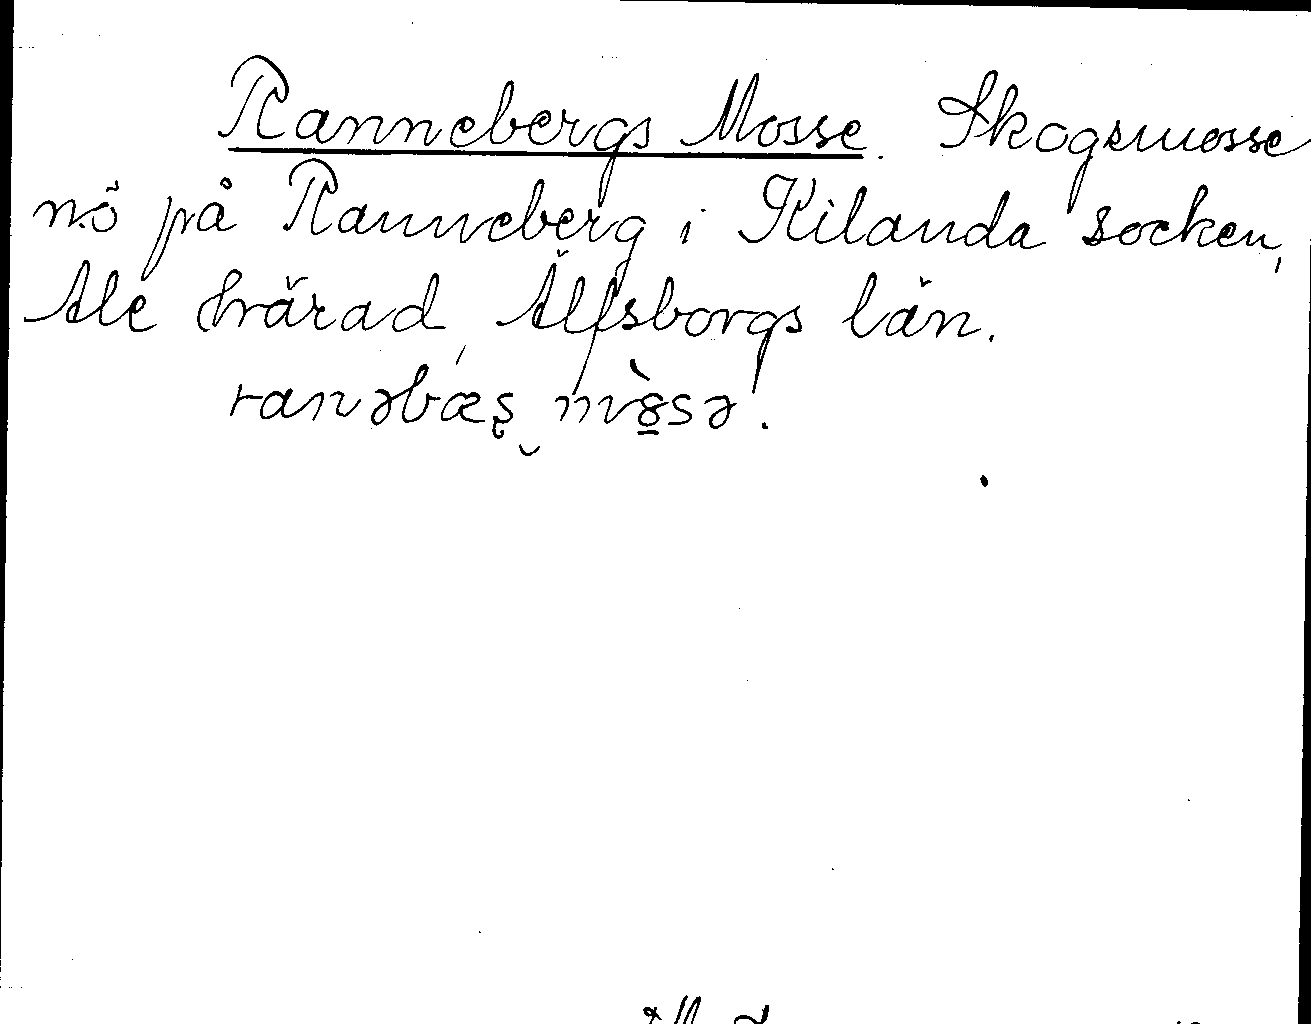 Rannebergs Mosse. Skogsmosse
nö på Ranneberg i Kilanda socken,
Ale härad, Älfsborgs län.
ranəbæʂ mòsə.